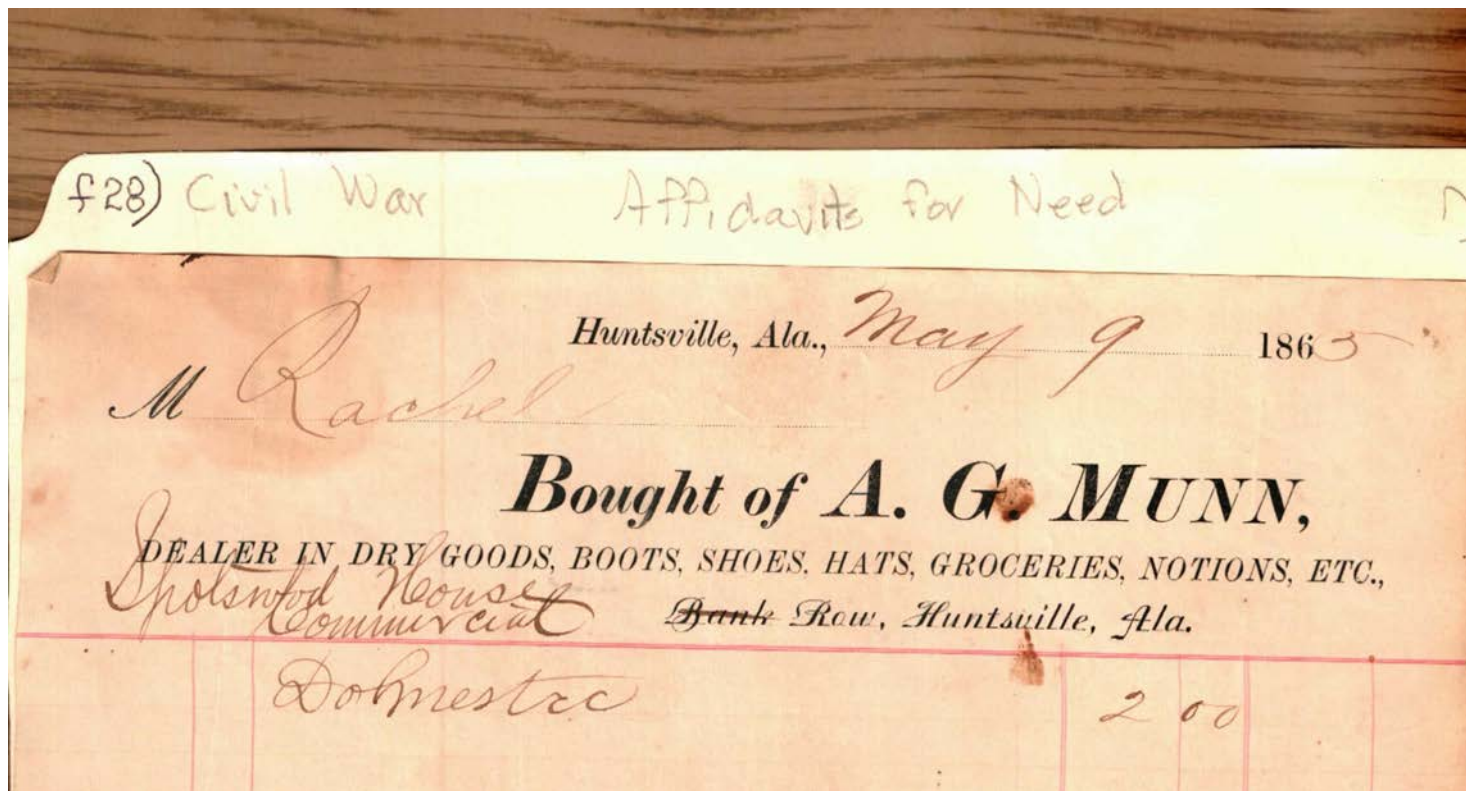 f28) Civil War Affidavits for Need
Huntsville, Ala., May 9 1865
M Rachel
Bought of A. G. MUNN,
DEALER IN DRY GOODS, BOOTS, SHOES, HATS, GROCERIES, NOTIONS, ETC.,
Spotswood House
Commercial Bank Row, Huntsville, Ala.
Dohmestic 2 00